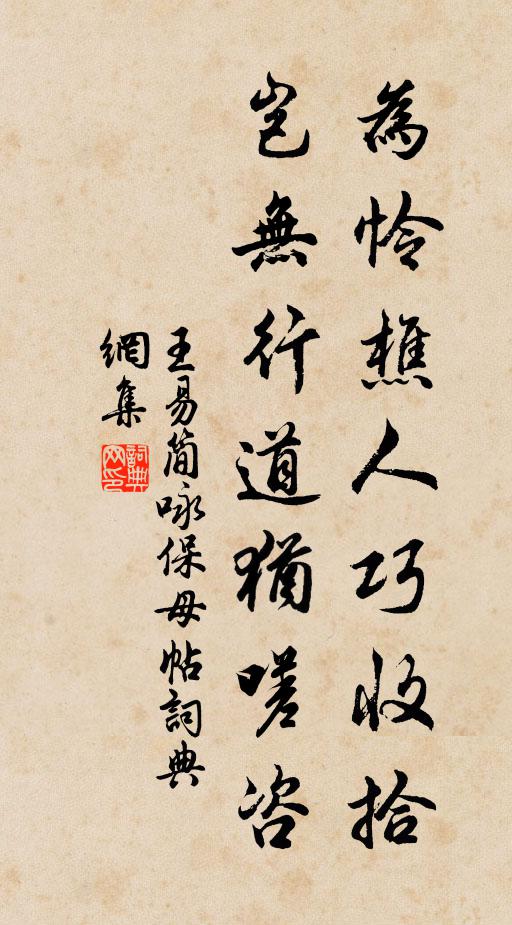 為憐樵人巧收拾
豈無行道猶嗟咨
王易簡咏保母帖詞典
網集
詞典
网印